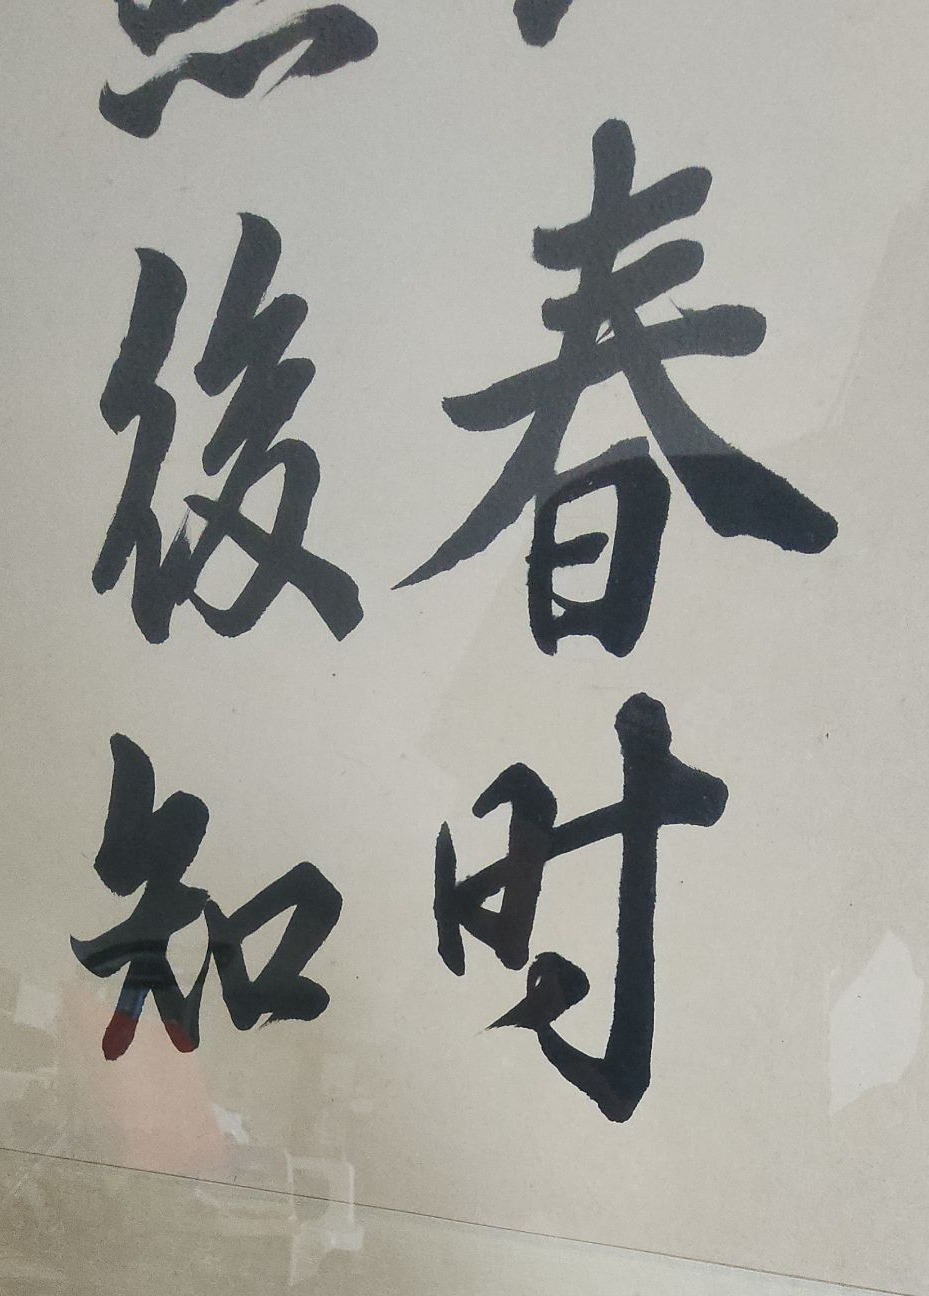 春时
後知